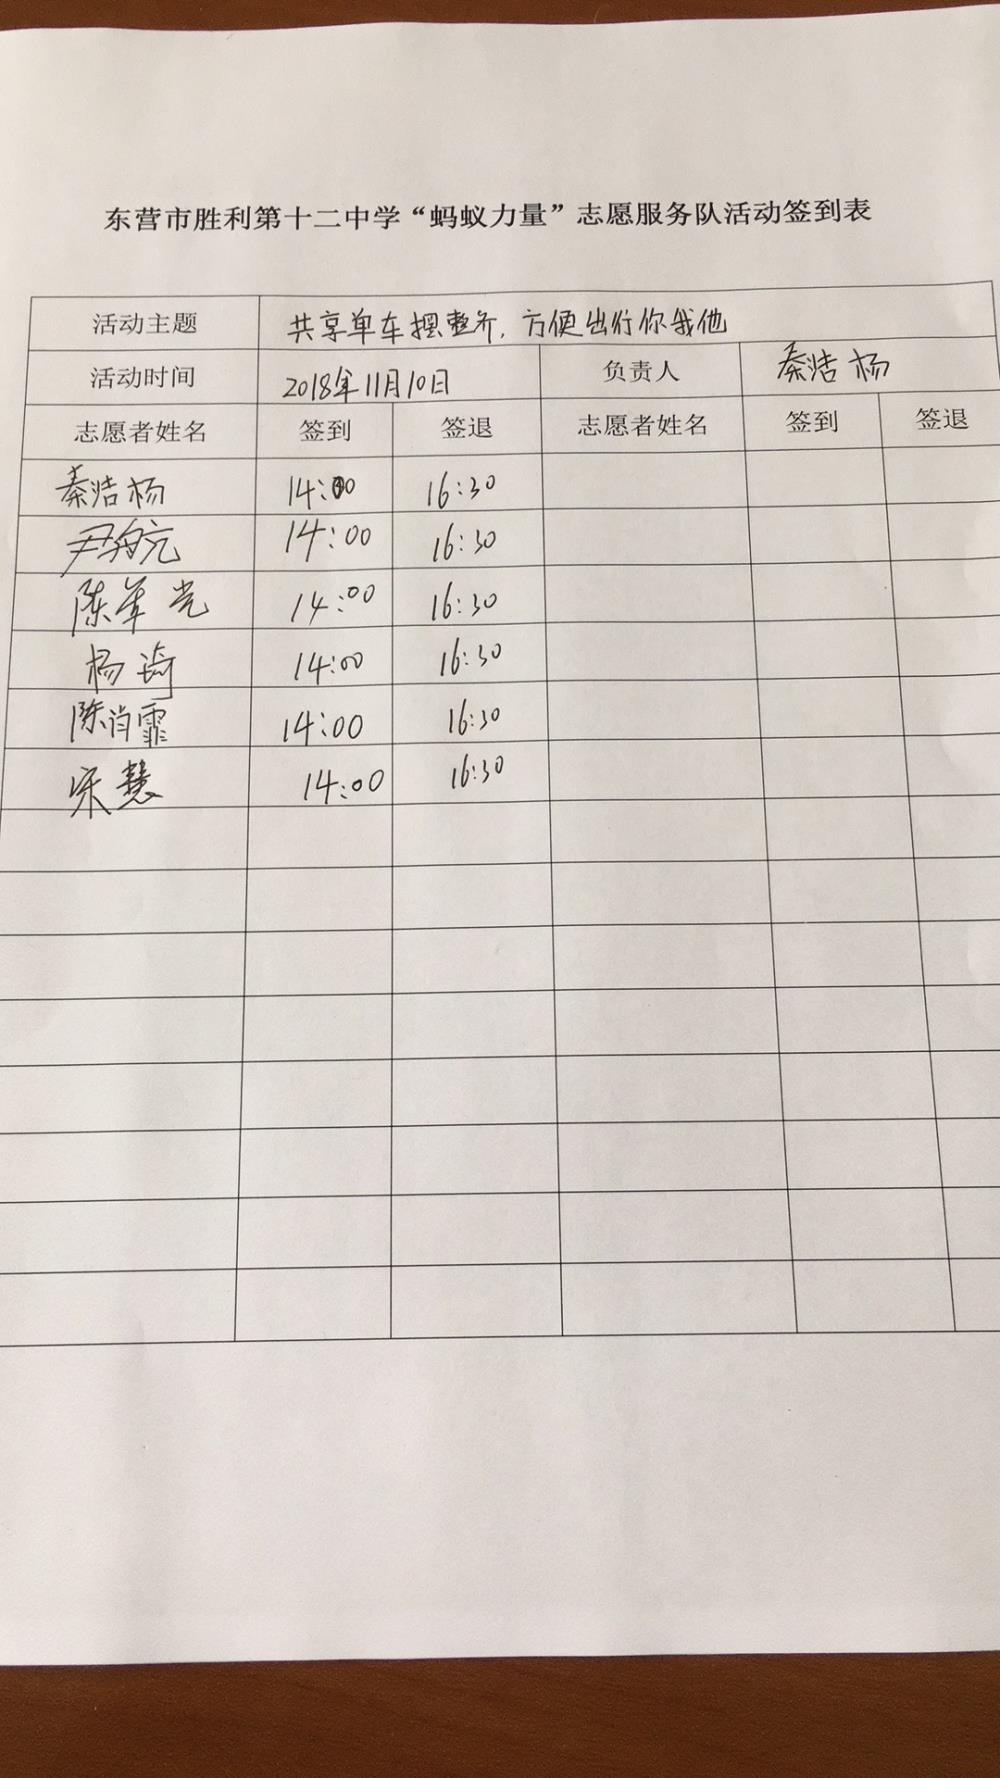 东营市胜利第十二中学“蚂蚁力量”志愿服务队活动签到表
活动主题 共享单车摆整齐，方便出行你我他
活动时间 2018年11月10日 负责人 秦洁杨
志愿者姓名 签到 签退 志愿者姓名 签到 签退
秦洁杨 14:00 16:30
尹翰亢 14:00 16:30
陈军光 14:00 16:30
杨琦 14:00 16:30
陈肖霏 14:00 16:30
宋慧 14:00 16:30